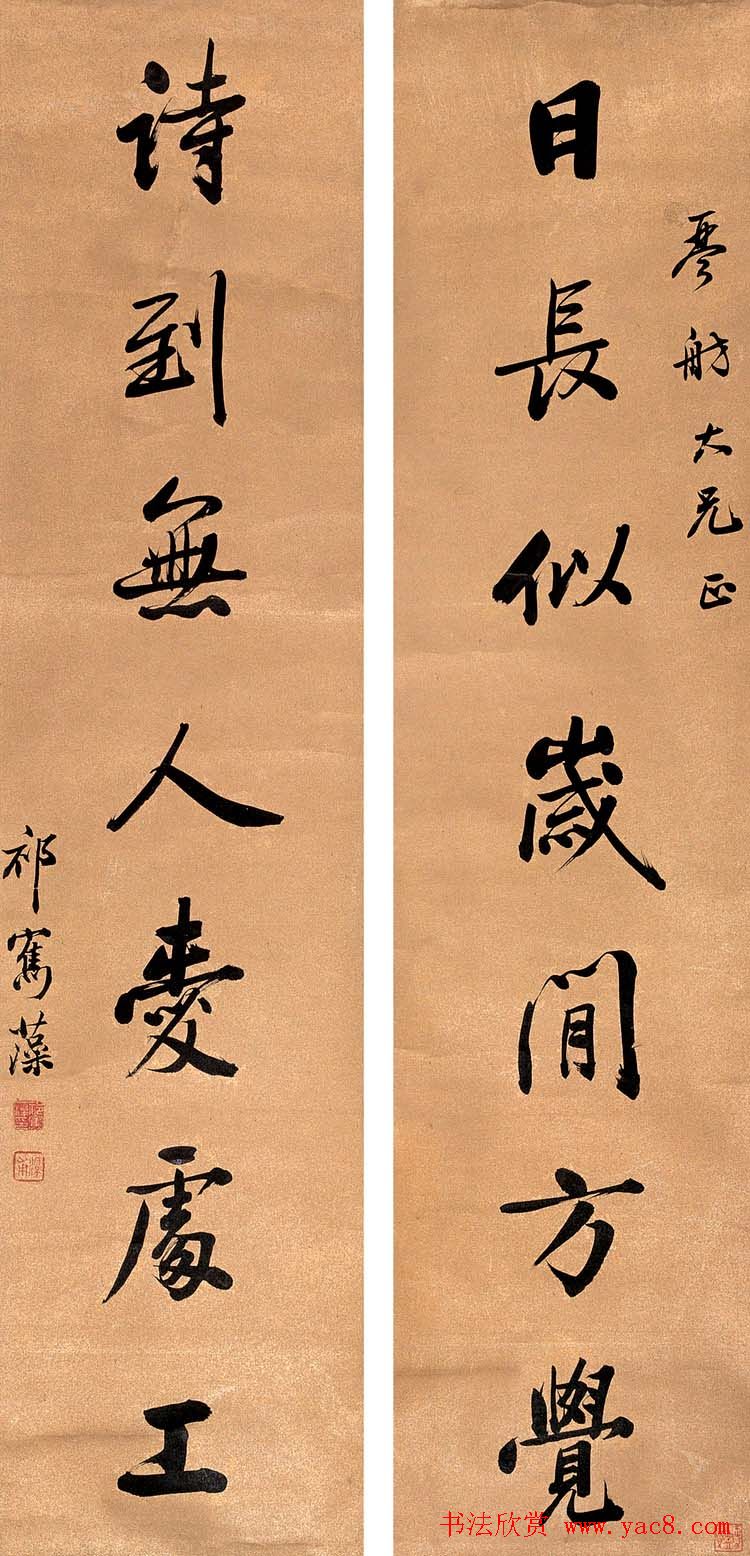 琴舫大兄正
日長似歲閒方覺
詩到無人愛處工
祁寯藻
书法欣赏 www.yac8.com